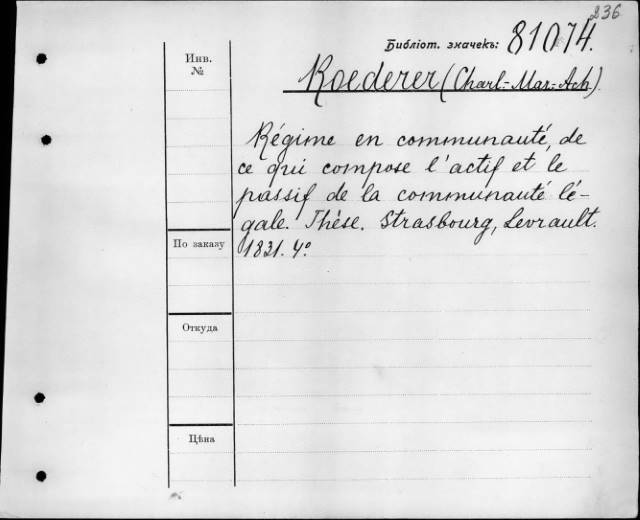 236
Библіот. значекъ: 81074.
Инв.
№
Roederer (Charl.-Mar.-Ach.)
Régime en communauté, de
ce qui compose l'actif et le
passif de la communauté lé-
gale. Thèse. Strasbourg, Levrault.
1831. 4°.
По заказу
Откуда
Цѣна